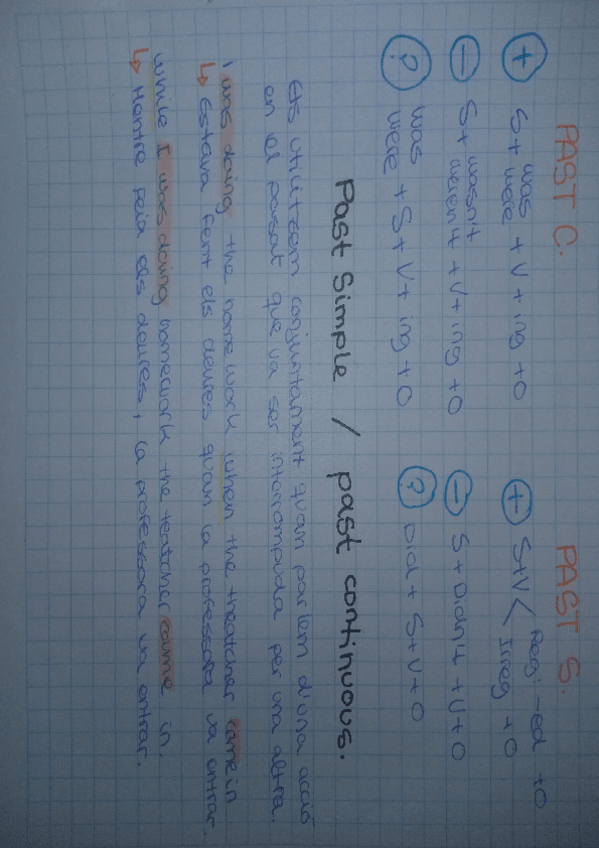 PAST C.
+ S + was/were + V + ing + O
- S + wasn't/weren't + V + ing + O
? was/were + S + V + ing + O
PAST S.
+ S+V < Reg: -ed +O / Irreg +O
- S + Didn't + V + O
? Did + S + V + O
Past Simple / past continuous.
Els utilitzem conjuntament quan parlem d'una acció
en el passat que va ser interrompuda per una altra.
I was doing the homework when the theatcher came in
↳ Estava fent els deures quan la professora va entrar.
While I was doing homework the teatcher came in.
↳ Mentre feia els deures, la professora va entrar.